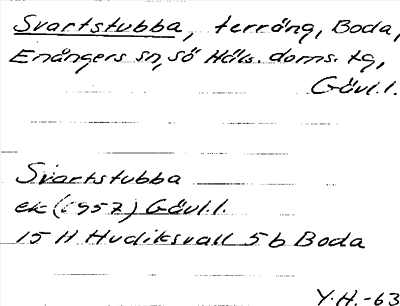 Svartstubba, terräng, Boda,
Enångers sn, sö Häls. doms. tg,
Gävl.l.
Svartstubba
ek (1957) Gävl.l.
15 H Hudiksvall 5b Boda
Y.H.-63